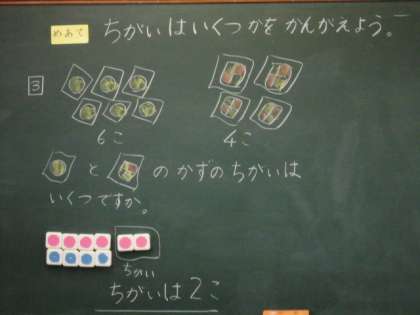 めあて ちがいはいくつかをかんがえよう。
3
6こ 4こ
と のかずのちがいは
いくつですか。
ちがい
ちがいは2こ